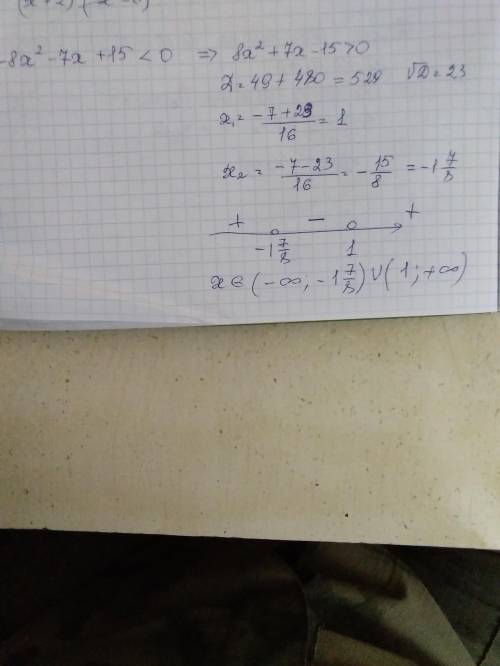 -8x² - 7x + 15 < 0 ⇒ 8x² + 7x - 15 > 0
D = 49 + 480 = 529 √D = 23
x₁ = (-7+23)/16 = 1
x₂ = (-7-23)/16 = -15/8 = -1 7/8
+ - +
-1 7/8 1
x ∈ (-∞; -1 7/8) ∪ (1; +∞)